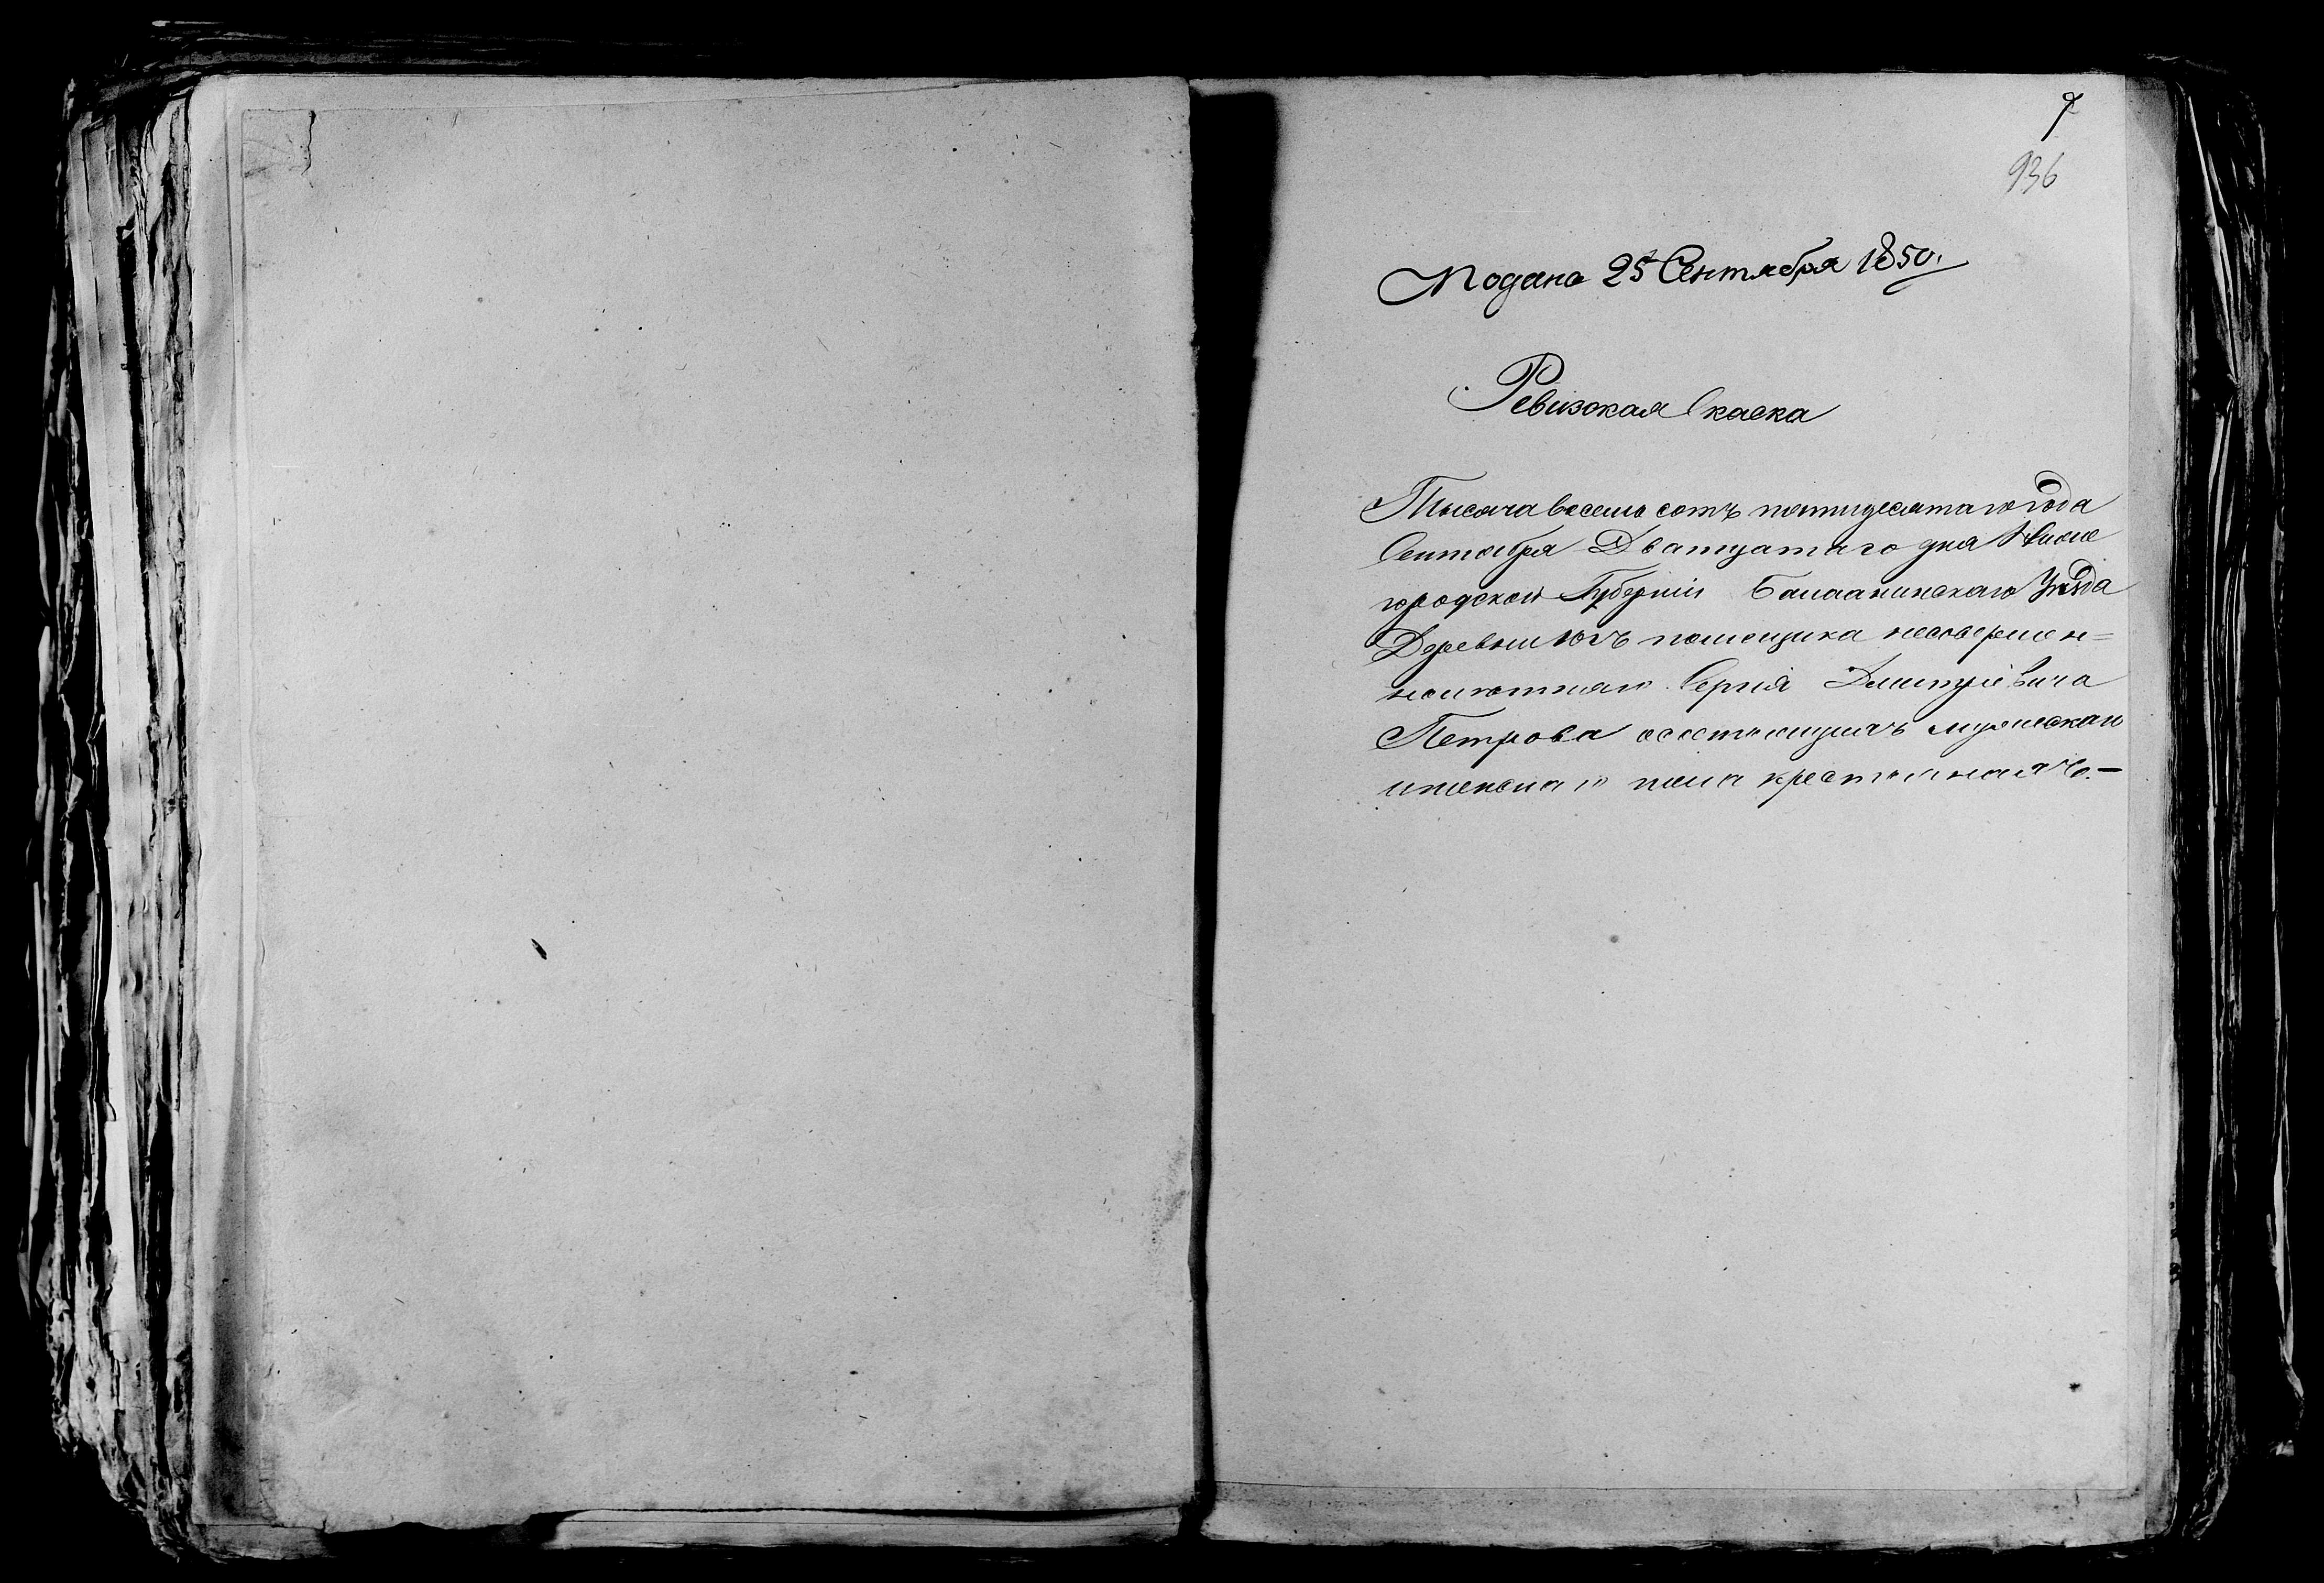 7
936
Подана 25 Сентября 1850.
Ревизская Скаска
Тысяча восемь сотъ пятидесятаго Года
Сентября Дватцатаго дня Ниже
городской Губернии Балахнинскаго Уѣзда
Деревни помещика несовершен=
нолетняго Сергѣя Дмитріевича
Петрова о состоящихъ мужескаго
и женскаго пола крестьянахъ.—